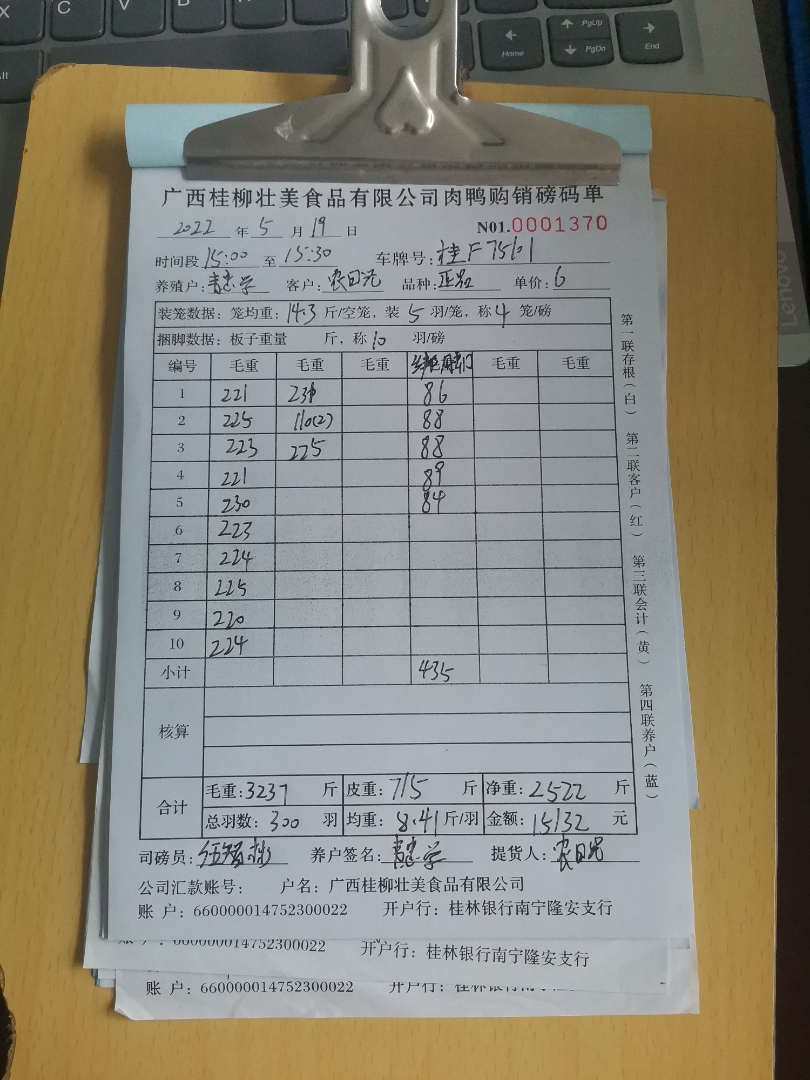 X C V
Alt
← Home ↑ PgUp ↓ PgDn → End
Lenovo
广西桂柳壮美食品有限公司肉鸭购销磅码单
2022 年 5 月 19 日 N01.0001370
时间段 15:00 至 15:30 车牌号: 桂F75101
养殖户: 客户: 品种: 正品 单价: 6
装笼数据: 笼均重: 14.3 斤/空笼, 装 5 羽/笼, 称 4 笼/磅
捆脚数据: 板子重量 斤, 称 10 羽/磅
编号 毛重 毛重 毛重 毛重 毛重
1 221 231 86
2 225 110(2) 88
3 223 225 88
4 221 89
5 230 84
6 223
7 224
8 225
9 220
10 224
小计 435
核算
合计 毛重: 3237 斤 皮重: 715 斤 净重: 2522 斤
总羽数: 300 羽 均重: 8.41 斤/羽 金额: 15132 元
司磅员: 养户签名: 提货人:
公司汇款账号: 户名: 广西桂柳壮美食品有限公司
账 户: 660000014752300022 开户行: 桂林银行南宁隆安支行
第一联存根(白) 第二联客户(红) 第三联会计(黄) 第四联养户(蓝)
账 户: 660000014752300022 开户行: 桂林银行南宁隆安支行
账 户: 660000014752300022 开户行: